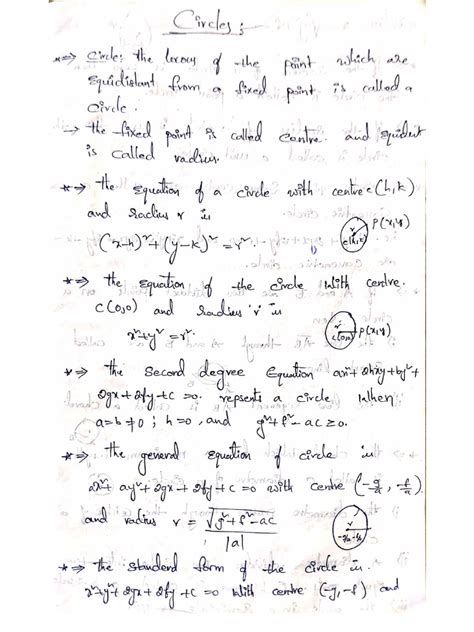 Circles:
*⇒ Circle: the locus of the point which are
equidistant from a fixed point is called a
circle.
→ the fixed point is called centre. and equidist
is called radius.
*⇒ The equation of a circle with centre c(h,k)
and radius r is
(x-h)²+(y-k)²=r².
r
c(h,k)
P(x,y)
*⇒ the equation of the circle with centre.
c(0,0) and radius 'r' is
x²+y²=r².
r
c(0,0)
P(x,y)
*⇒ the second degree Equation ax²+2hxy+by²+
2gx+2fy+c=0. repsents a circle when
a=b≠0; h=0, and g²+f²-ac≥0.
*⇒ the general equation of circle is
ax²+ay²+2gx+2fy+c=0 with centre (-g/a, -f/a)
and radius r = √g²+f²-ac
|a|
r
-g/a, -f/a
*⇒ the standard form of the circle is.
x²+y²+2gx+2fy+c=0 with centre (-g,-f) and